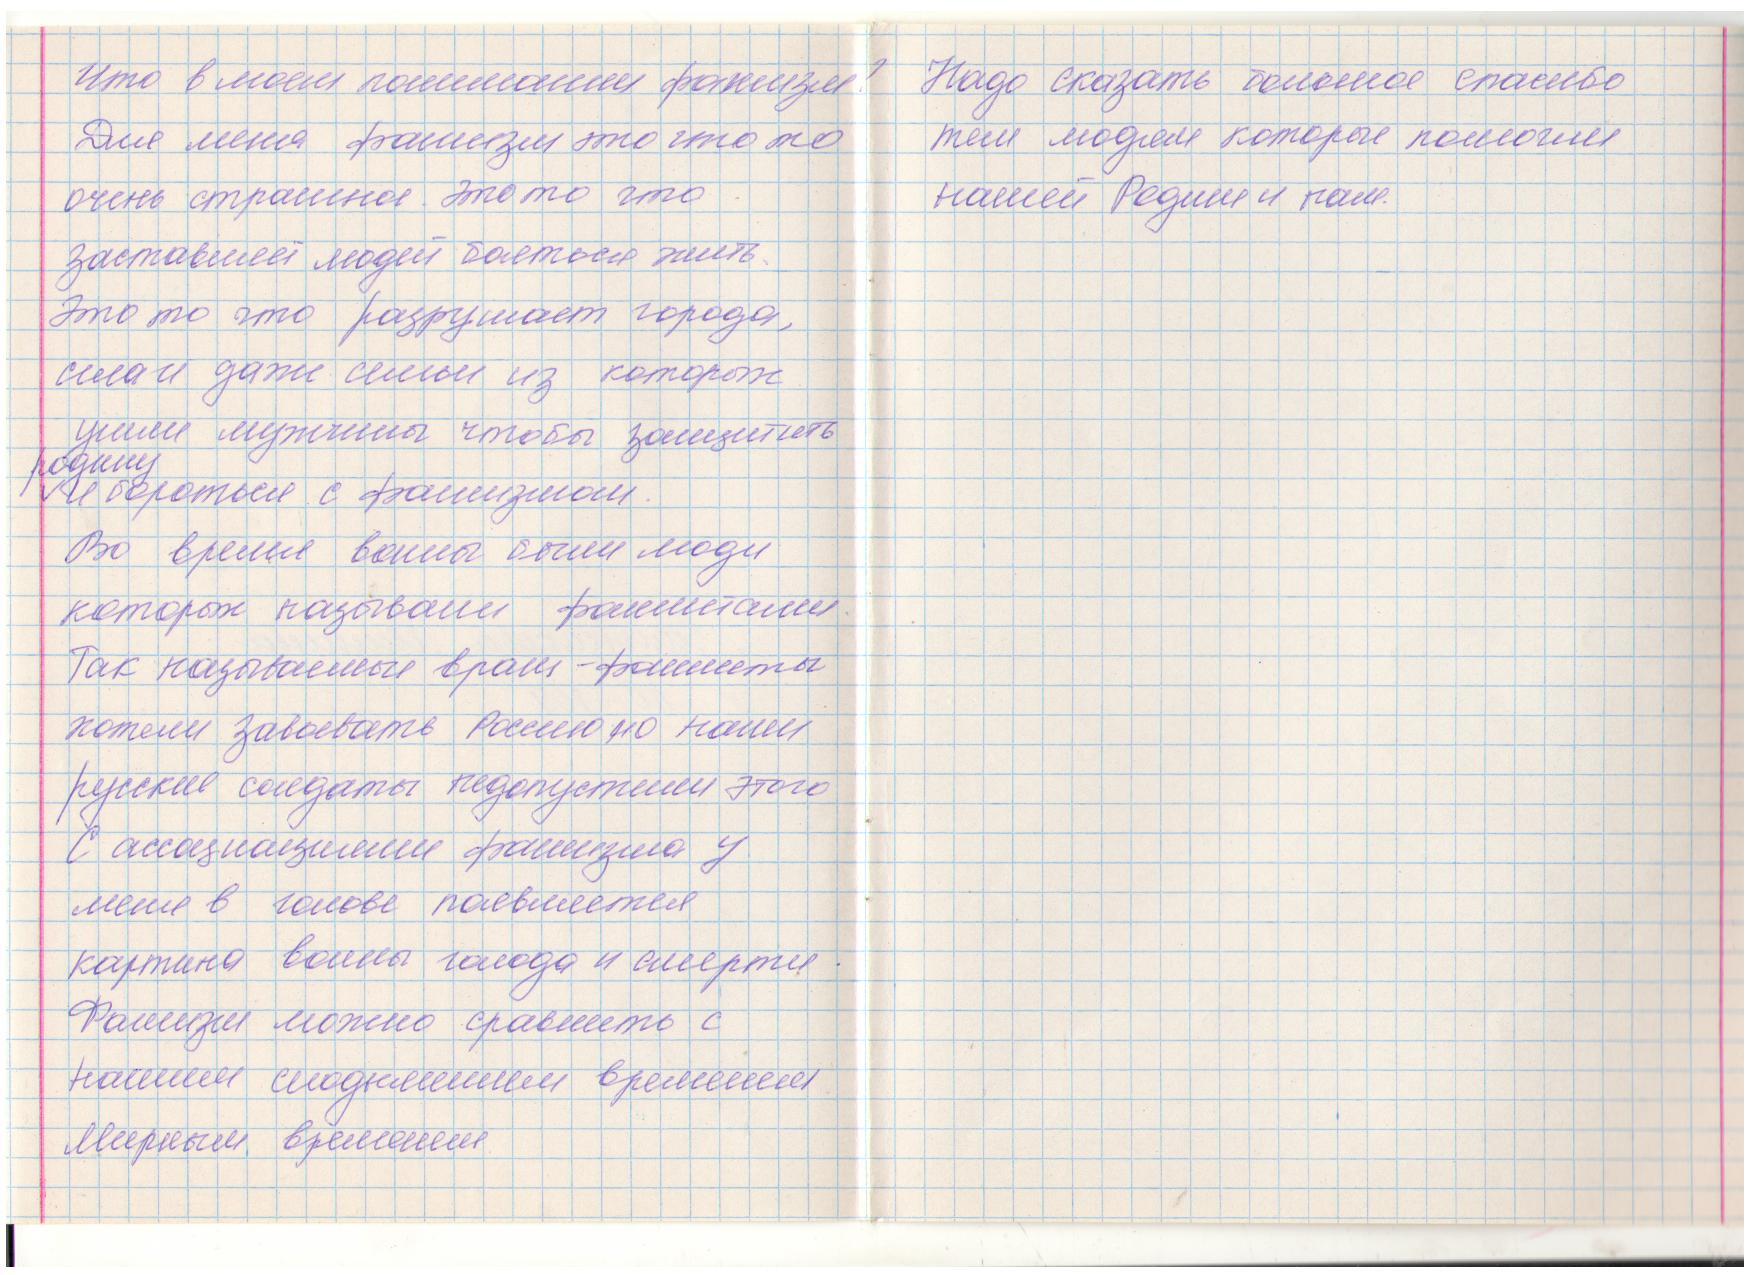 Что в моем понимании фашизм?
Для меня фашизм это что то
очень страшное. Это то что
заставляет людей бояться жить.
Это то что разрушает города,
сила и даже семьи из которых
ушли мужчины чтобы защитить
родину
и бороться с фашизмом.
Во время войны были люди
которых называли фашистами.
Так называемые враги - фашисты
хотели завоевать Россию но наши
русские солдаты недопустили этого
С ассоциациями фашизма у
меня в голове появляется
картина войны голода и смерти.
Фашизм можно сравнить с
нашим сегодняшним временем
Мирным временем
Надо сказать большое спасибо
тем людям которые помогли
нашей Родине и нам.